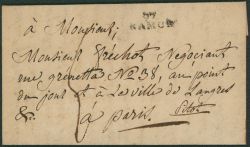 97
NAMUR
à Monsieur,
Monsieur Fréchot Négociant
rue grenetta N° 38, au point
du jour et à la ville de Langres
&c.
à paris.